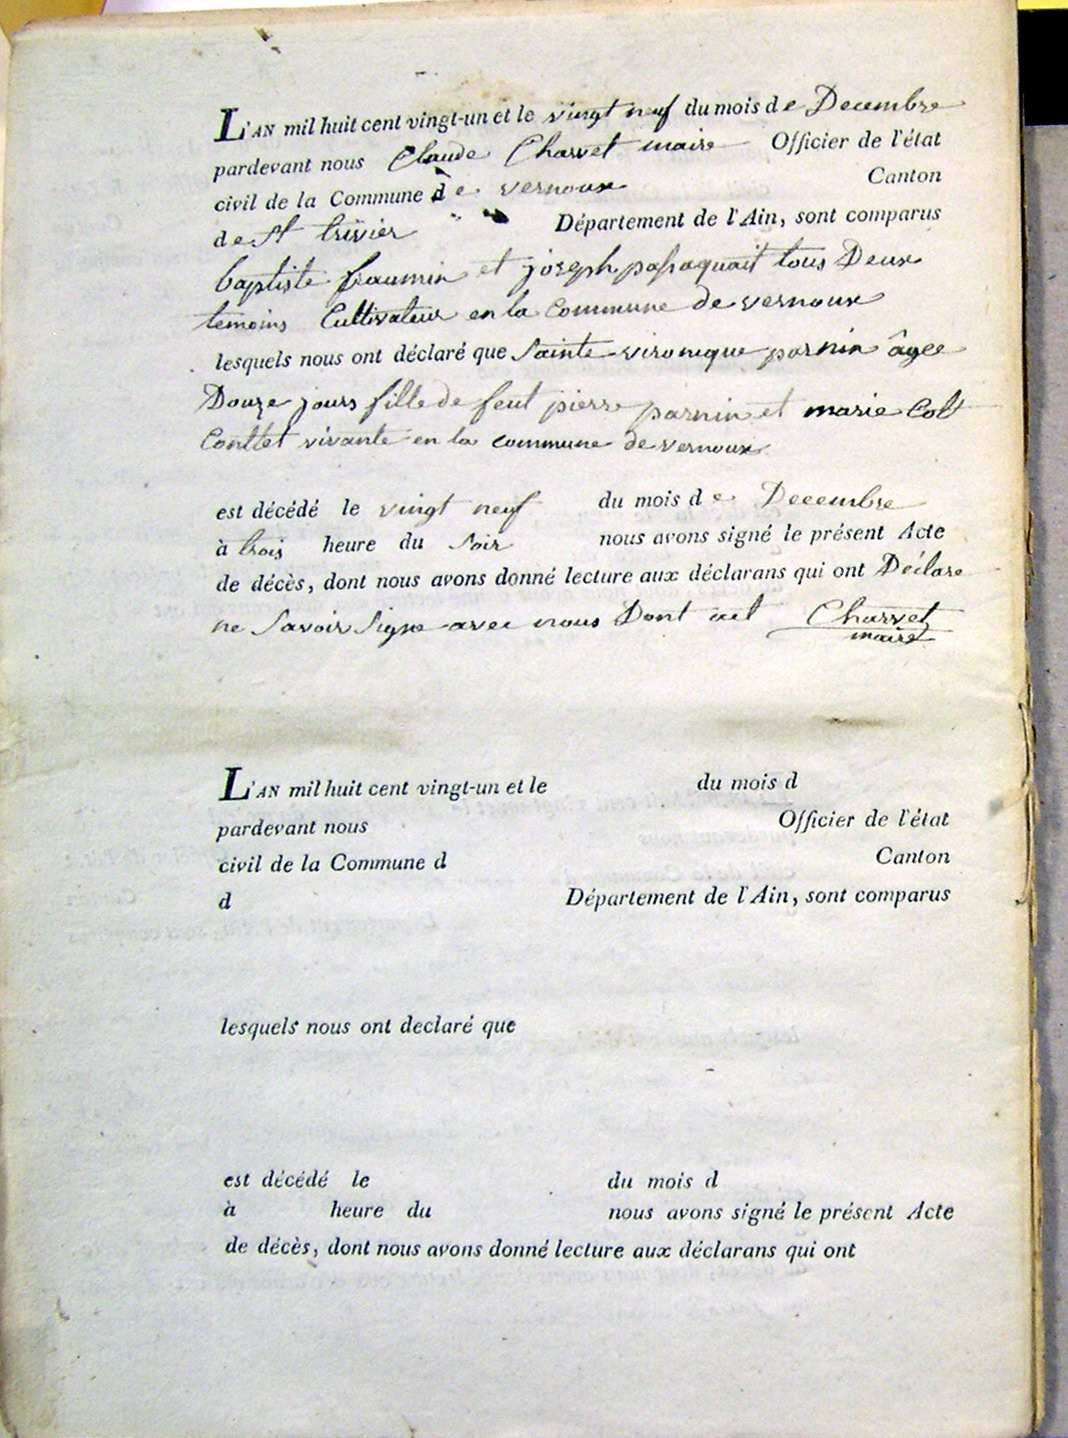 L'AN mil huit cent vingt-un et le vingt neuf du mois de Decembre
pardevant nous Claude Charvet maire Officier de l'état
civil de la Commune de vernoux Canton
de St trivier Département de l'Ain, sont comparus
baptiste et joseph tous Deux
temoins Cultivateur en la Commune de vernoux
lesquels nous ont déclaré que Sainte vironique parnin âgee
Douze jours fille de feut pierre parnin et marie Colt
Conttet vivante en la commune de vernoux
est décédé le vingt neuf du mois de Decembre
à trois heure du Soir nous avons signé le présent Acte
de décès, dont nous avons donné lecture aux déclarans qui ont Déclare
ne Savoir Signe avec nous Dont act Charvet
maire
L'AN mil huit cent vingt-un et le du mois d
pardevant nous Officier de l'état
civil de la Commune d Canton
d Département de l'Ain, sont comparus
lesquels nous ont declaré que
est décédé le du mois d
à heure du nous avons signé le présent Acte
de décès, dont nous avons donné lecture aux déclarans qui ont